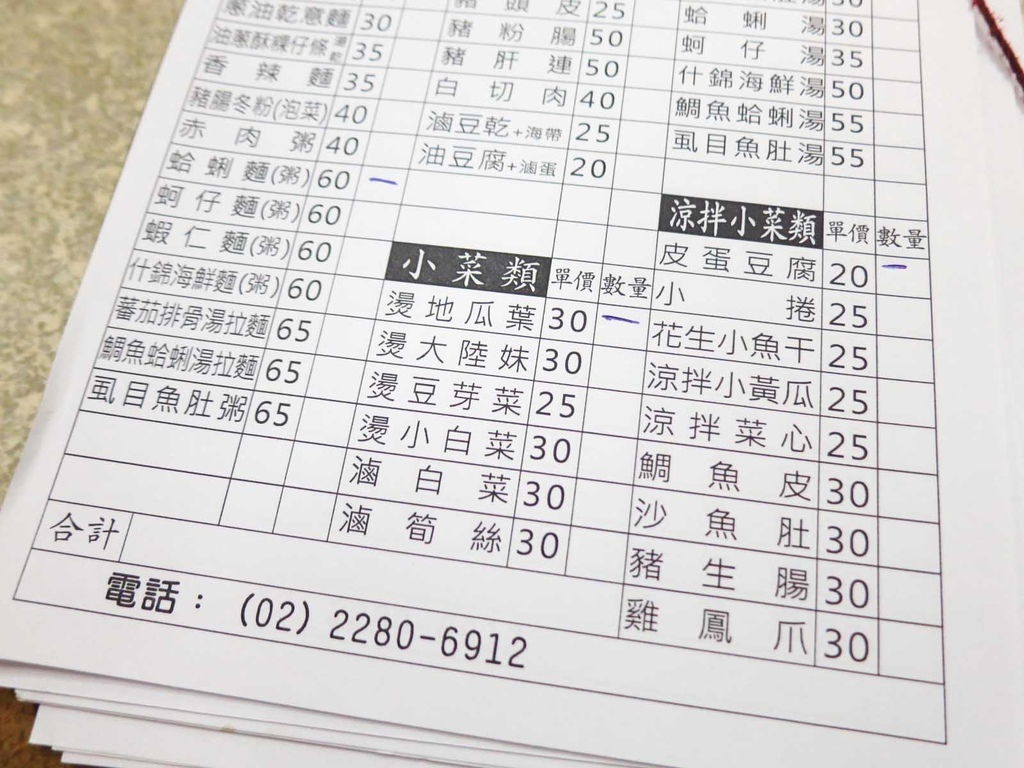 蔥油乾意麵 30
油蔥酥粿仔條 湯乾 35
香辣麵 35
豬腸冬粉(泡菜) 40
赤肉粥 40
蛤蜊麵(粥) 60 一
蚵仔麵(粥) 60
蝦仁麵(粥) 60
什錦海鮮麵(粥) 60
蕃茄排骨湯拉麵 65
鯛魚蛤蜊湯拉麵 65
虱目魚肚粥 65
合計
豬頭皮 25
豬粉腸 50
豬肝連 50
白切肉 40
滷豆乾+海帶 25
油豆腐+滷蛋 20
小菜類 單價 數量
燙地瓜葉 30 一
燙大陸妹 30
燙豆芽菜 25
燙小白菜 30
滷白菜 30
滷筍絲 30
蛤蜊湯 30
蚵仔湯 35
什錦海鮮湯 50
鯛魚蛤蜊湯 55
虱目魚肚湯 55
涼拌小菜類 單價 數量
皮蛋豆腐 20 一
小捲 25
花生小魚干 25
涼拌小黃瓜 25
涼拌菜心 25
鯛魚皮 30
沙魚肚 30
豬生腸 30
雞鳳爪 30
電話：(02) 2280-6912